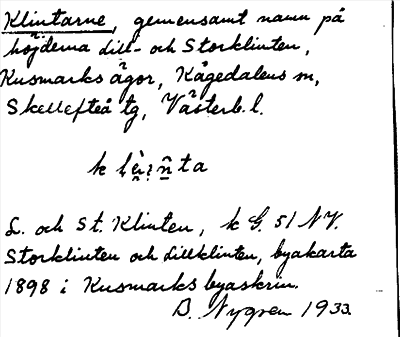 Klintarne, gemensamt namn på
höjderna Lill- och Storklinten,
Kusmarks ägor, Kågedalens sn,
Skellefteå tg, Västerb. l.
L. och St. Klinten, k G. 51 NV.
Storklinten och Lillklinten, byakarta
1898 i Kusmarks byaskrin.
B. Nygren 1933.